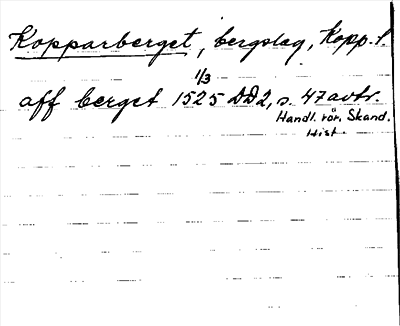 Kopparberget, bergslag, Kopp. l.
1/3
aff berget 1525 DD2, s. 47 avtr.
Handl. rör. Skand.
Hist.